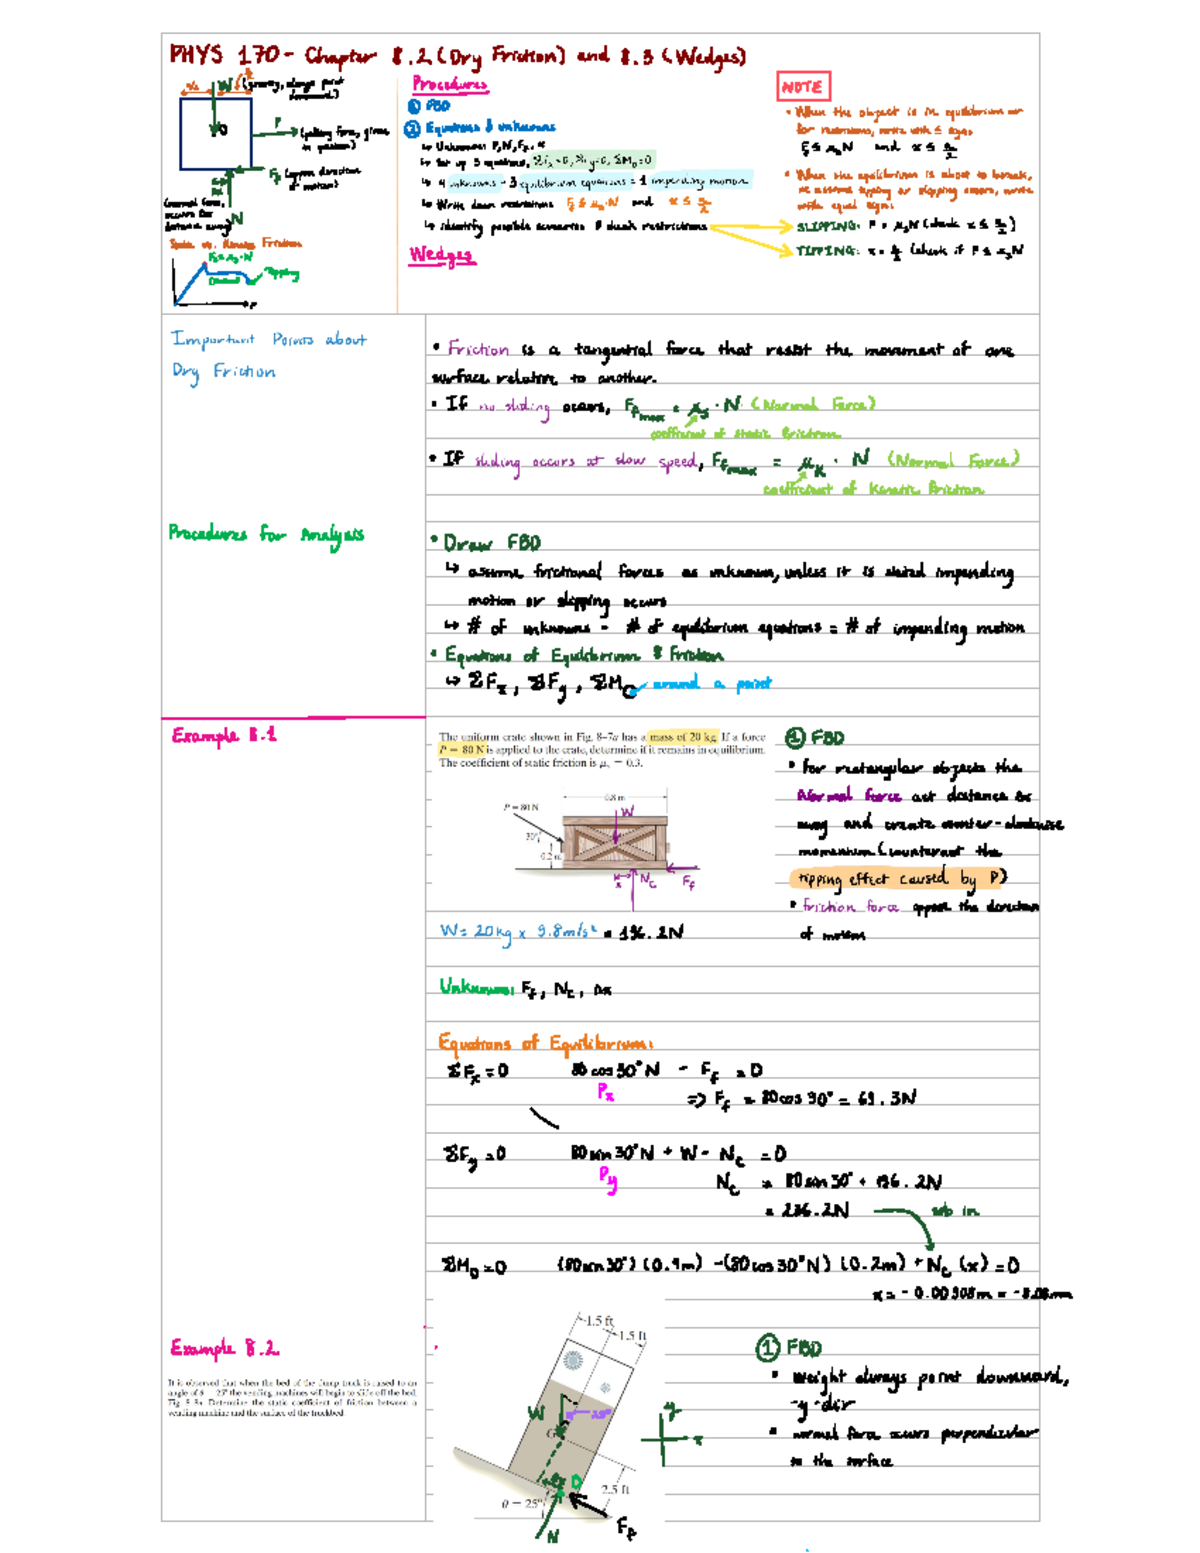 PHYS 170 - Chapter 8.2 (Dry Friction) and 8.3 (Wedges)
W (gravity, always point downward)
P (pulling force, given in question)
F_f (oppose direction of motion)
N
Static vs. Kinetic Friction
Procedures
① FBD
② Equations & unknowns
↳ Unknowns: P, N, F_f, x
↳ Set up 3 equations, ΣF_x=0, ΣF_y=0, ΣM_O=0
↳ 4 unknowns - 3 equilibrium equations = 1 impending motion
↳ Write down restrictions
and
↳ identify possible scenarios & check restrictions
Wedges
NOTE
• When the object is in equilibrium or for restrictions, write with ≤ sign
and
• When the equilibrium is about to break,
write equal sign
SLIPPING: F = μ_s N (check
TIPPING: x = (check if F ≤ μ_s N
Important Points about
Dry Friction
• Friction is a tangential force that resist the movement of one
surface relative to another.
• If no sliding occurs, F_f max = μ_s · N (Normal Force)
coefficient of static friction
• If sliding occurs at slow speed, F_f max = μ_k · N (Normal Force)
coefficient of kinetic friction
Procedures for Analysis
• Draw FBD
↳ assume frictional forces as unknown, unless it is stated impending
motion or slipping occurs
↳ # of unknowns - # of equilibrium equations = # of impending motion
• Equations of Equilibrium & Friction
↳ ΣF_x, ΣF_y, ΣM_O around a point
Example 8.1
The uniform crate shown in Fig. 8–7a has a mass of 20 kg. If a force
P = 80 N is applied to the crate, determine if it remains in equilibrium.
The coefficient of static friction is μ_s = 0.3.
0.8 m
P = 80 N
30°
0.2 m
W
x
N_c
F_f
① FBD
• For rectangular objects the
Normal force act distance
away and create counter-clockwise
momentum (counteract the
tipping effect caused by P)
• friction force oppose the direction
of motion
W = 20kg x 9.8m/s² = 196.2N
Unknowns: F_f, N_c, Δx
Equations of Equilibrium:
ΣF_x = 0 80 cos 30° N - F_f = 0
P_x ⇒ F_f = 80cos 30° = 69.3N
ΣF_y = 0 80 sin 30° N + W - N_c = 0
P_y N_c = 80 sin 30° + 196.2N
= 236.2N sub in
ΣM_O = 0 (80sin 30°) (0.4m) - (80 cos 30° N) (0.2m) + N_c (x) = 0
x = - 0.00908m = -9.08mm
Example 8.2
It is observed that when the bed of the dump truck is raised to an
angle of θ = 25° the vending machines will begin to slide off the bed,
Fig. 8–8a. Determine the static coefficient of friction between a
vending machine and the surface of the truckbed.
1.5 ft
1.5 ft
W
25°
G
O
2.5 ft
θ = 25°
N
F_f
y
x
① FBD
• Weight always point downward,
-y-dir
• normal force occurs perpendicular
to the surface